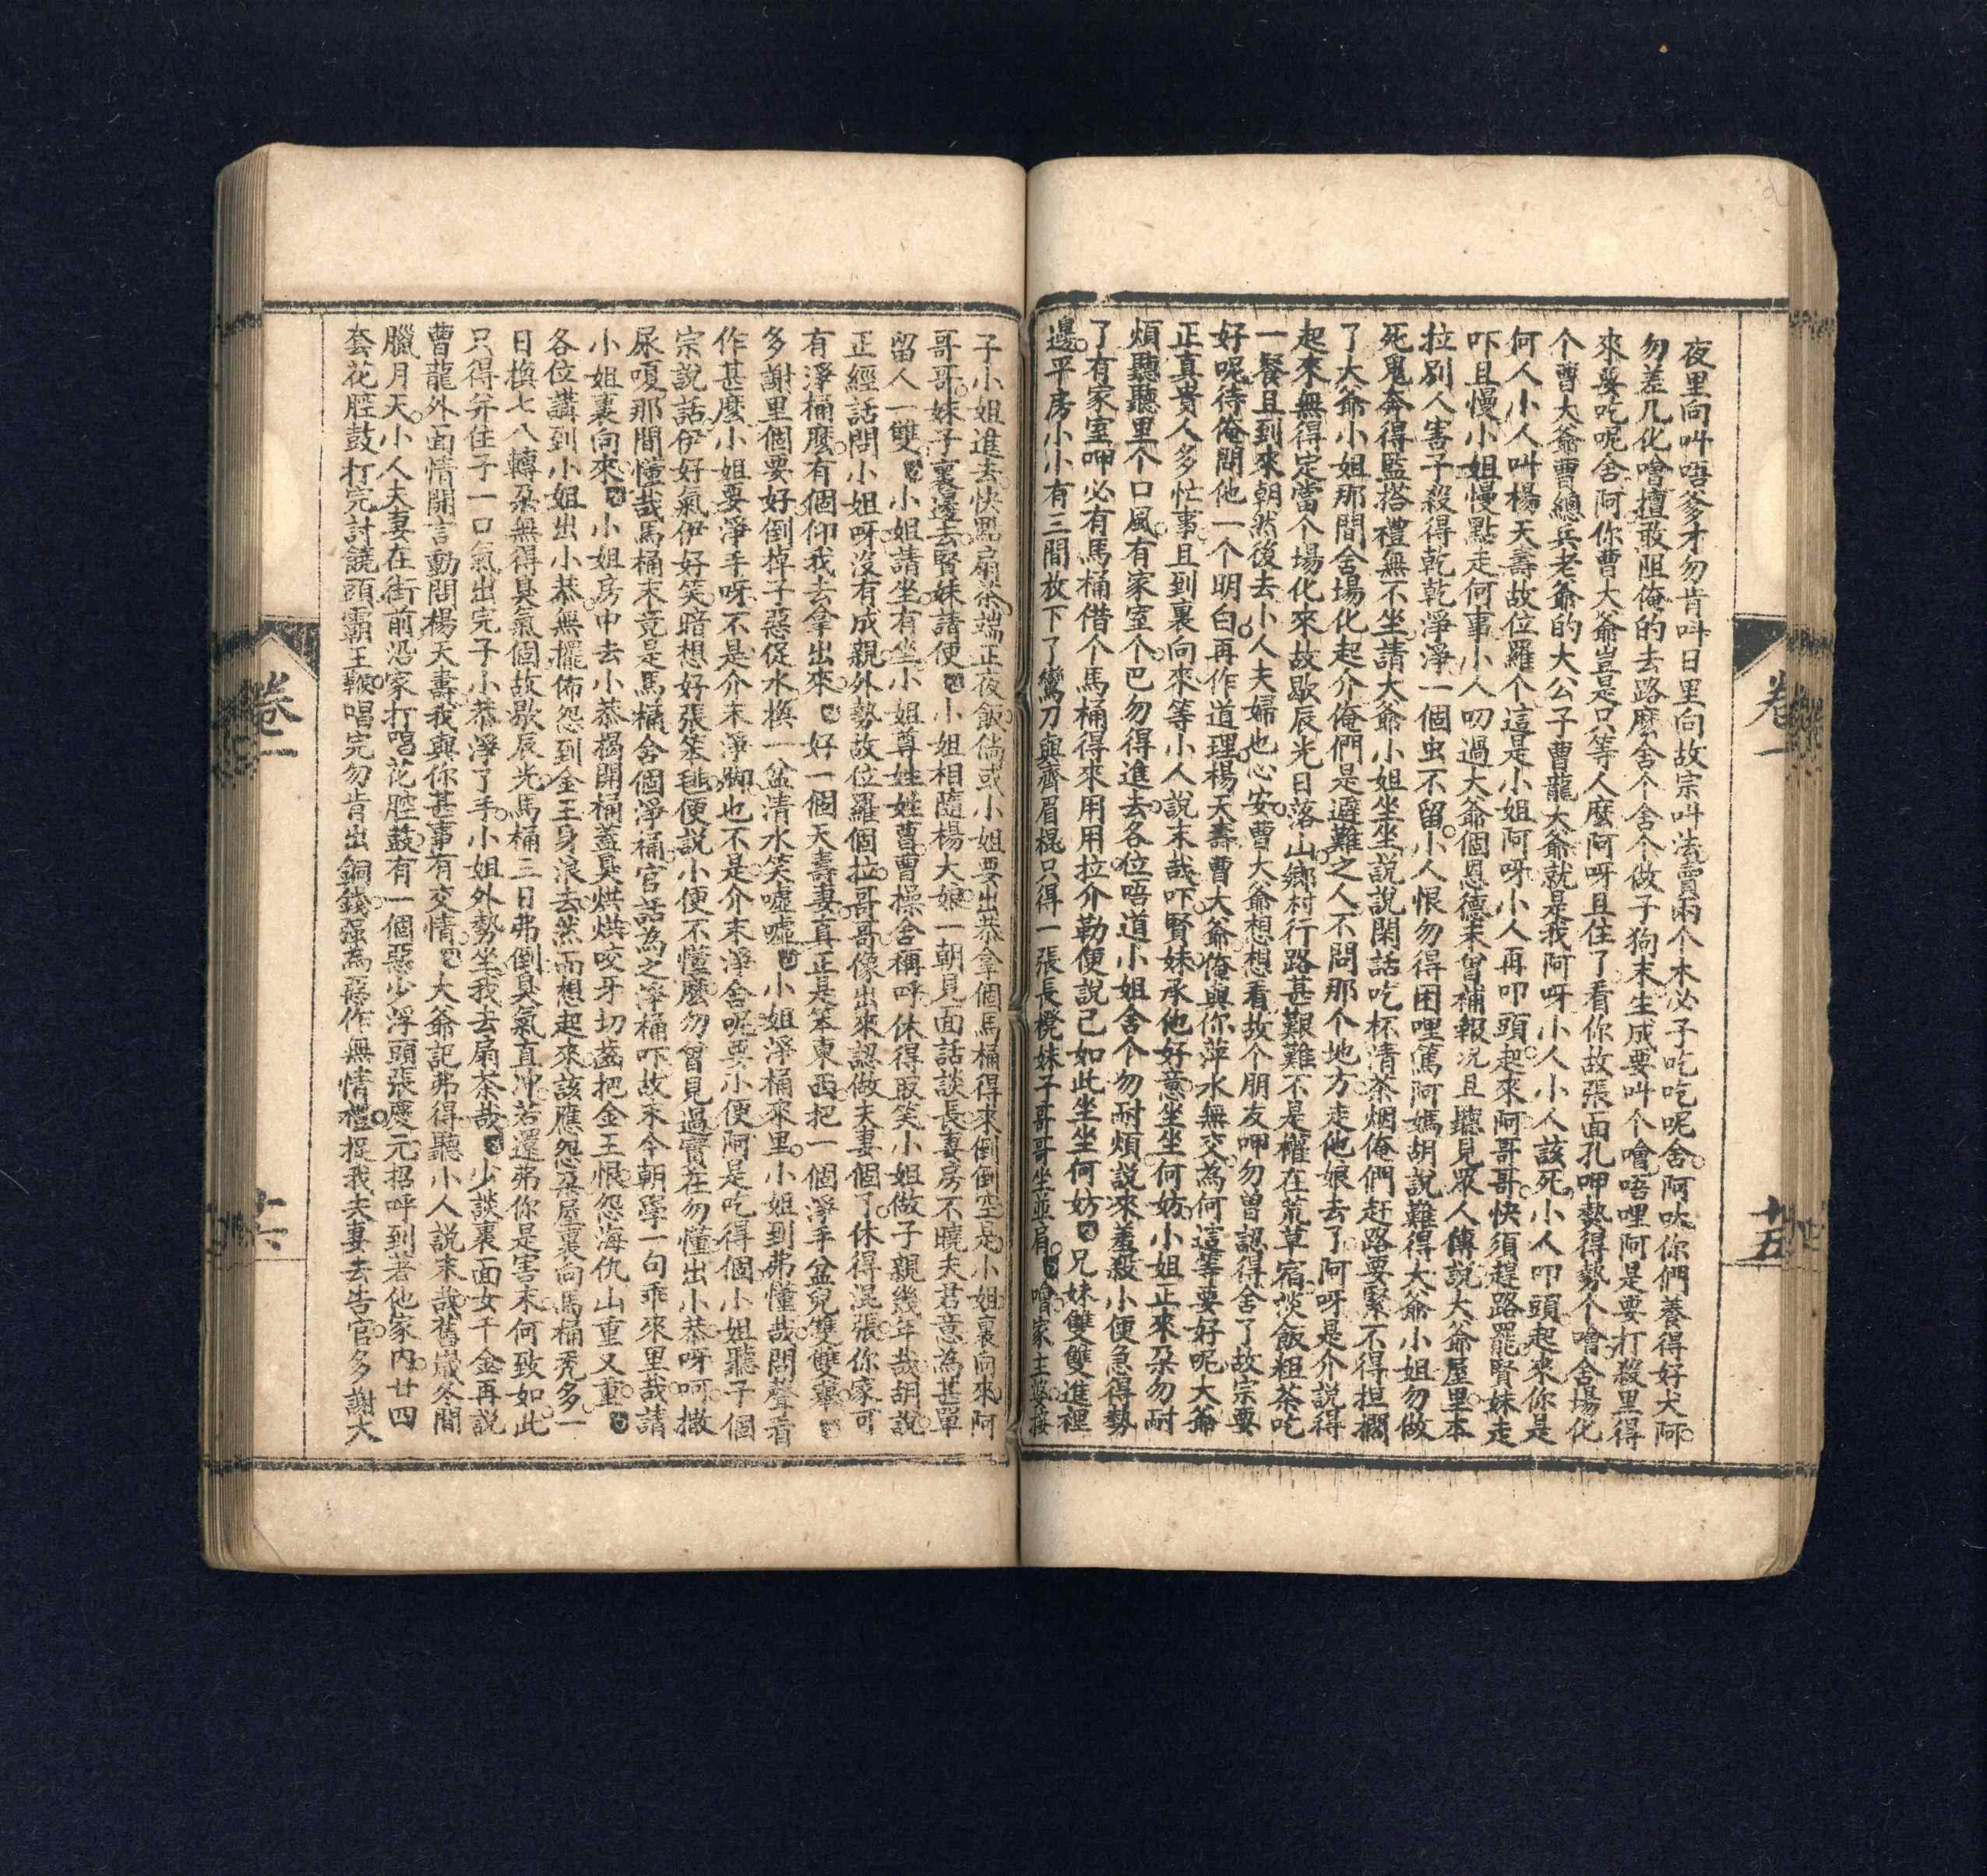 卷一
十五
夜里向叫唔爹才勿肯叫日里向故宗叫法賣兩个木必子吃吃呢舍阿呔你們養得好犬阿
勿差几化噲擅敢阻俺的去路麽舍个舍个做子狗末生成要叫个噲唔哩阿是要打殺里得
來要吃呢舍阿你曹大爺豈是只等人麽阿呀且住了看你故張面孔呷勢得勢个噲舍場化
个曹大爺曹總兵老爺的大公子曹龍大爺就是我阿呀小人小人該死小人叩頭起來你是
何人小人叫楊天壽故位羅个這是小姐阿呀小人再叩頭起來阿哥哥快須趕路罷賢妹走
吓且慢小姐慢點走何事小人叨過大爺個恩德末曾補報况且聽見眾人傳説大爺屋里本
拉别人害子殺得乾乾淨淨一個虫不留小人恨勿得困哩篤阿媽胡說難得大爺小姐勿做
死鬼奔得監搭禮無不坐請大爺小姐坐坐説説閑話吃杯清茶烟俺們赶路要緊不得担擱
了大爺小姐那間舍場化起介俺們是避難之人不問那个地方走他娘去了阿呀是介説得
起來無得定當个場化來故歇辰光日落山鄉村行路甚艱難不是權在荒草宿淡飯粗茶吃
一餐且到來朝然後去小人夫婦也心安曹大爺想想看故个朋友呷勿曾認得舍了故宗要
好呢待俺問他一个明白再作道理楊天壽曹大爺俺與你萍水無交為何這等要好呢大爺
正真貴人多忙事且到裏向來等小人説末哉吓賢妹承他好意坐坐何妨小姐正來朶勿耐
煩聽聽里个口風有家室个巴勿得進去各位唔道小姐舍个勿耐煩説來羞殺小便急得勢
了有家室呷必有馬桶借个馬桶得來用用拉介勒便說已如此坐坐何妨兄妹雙雙進裡
邊平房小小有三間放下了鸞刀與齊眉棍只得一張長櫈妹子哥哥坐並肩噲家主婆接
子小姐進去快點扇茶端正夜飯倘或小姐要出恭拿個馬桶得來倒倒空是小姐裏向來阿
哥哥妹子裏邊去賢妹請便小姐相隨楊大娘一朝見面話談長妻房不曉夫君意為甚單
留人一雙小姐請坐有坐小姐尊姓姓曹曹操舍稱呼休得取笑小姐做子親幾年哉胡說
正經話問小姐呀沒有成親外勢故位羅個拉哥哥像出來認做夫妻個了休得混張你家可
有淨桶麽有個仰我去拿出來好一個天壽妻真正是笨東西把一個淨手盆兒雙雙擧
多謝里個要好倒掉子惡促水換一盆清水笑噓噓小姐淨桶來里小姐到弗懂哉問聲看
作甚麽小姐要淨手呀不是介末淨脚也不是介末淨舍呢要小便阿是吃得個小姐聽子個
宗說話伊好氣伊好笑暗想好張笨毴便説小便不懂麽勿曾見過實在勿懂出小恭呀呵撒
尿嗄那間懂哉馬桶末竟是馬桶舍個淨桶官話為之淨桶吓故末今朝學一句乖來里哉請
小姐裏向來小姐房中去小恭揭開桶蓋臭烘烘咬牙切齒把金王恨怨海仇山重又重
各位講到小姐出小恭無擺佈怨到金王身浪去然而想起來該應怨朶屋裏向馬桶禿多一
日換七八轉朶無得臭氣個故歇辰光馬桶三日弗倒臭氣直冲若還弗你是害末何致如此
只得弁住子一口氣出完子小恭淨了手小姐外勢坐我去扇茶哉少談裏面女千金再説
曹龍外面情開言動問楊天壽我與你甚事有交情大爺記弗得聽小人説末哉舊歲冬間
臘月天小人夫妻在街前沿家打唱花腔鼓有一個惡少浮頭張慶元招呼到著他家内廿四
套花腔鼓打完討饒頭霸王鞭唱完勿肯出銅錢强為惡作無情禮捉我夫妻去告官多謝大
卷一
十六